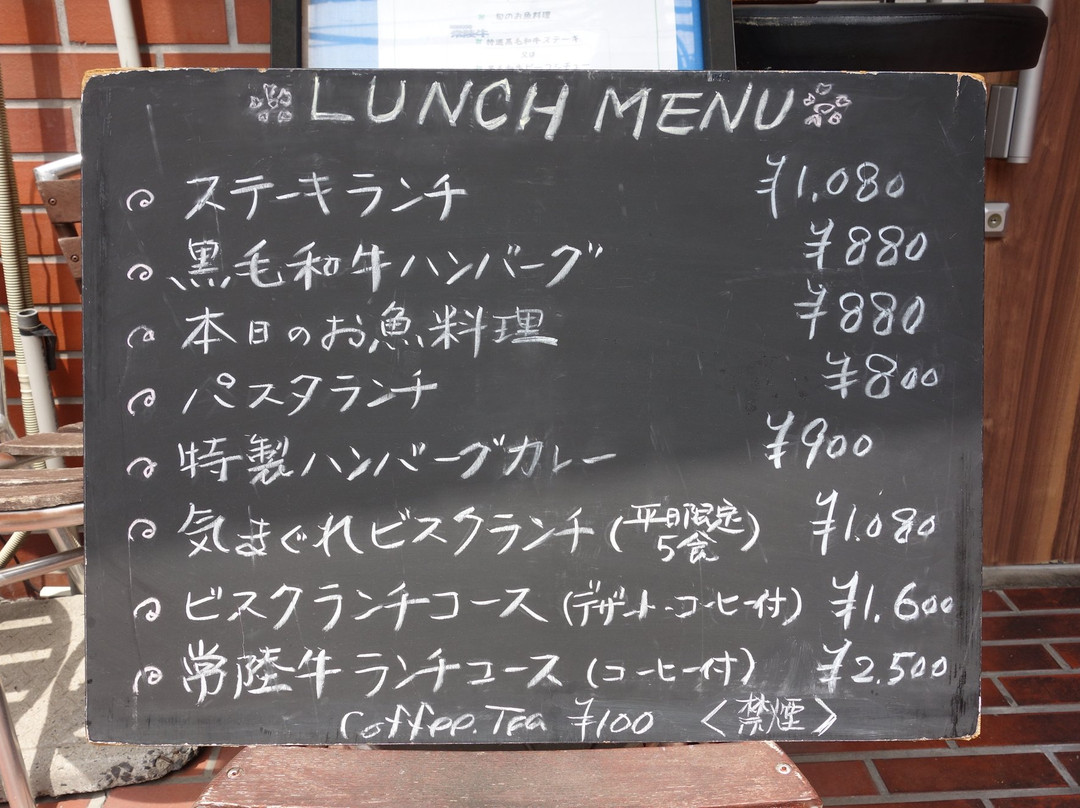 旬のお魚料理
常陸牛
LUNCH MENU
ステーキランチ ¥1.080
黒毛和牛ハンバーグ ¥880
本日のお魚料理 ¥880
パスタランチ ¥800
特製ハンバーグカレー ¥900
気まぐれビスクランチ (平日限定 5食) ¥1.080
ビスクランチコース (デザート・コーヒー付) ¥1.600
常陸牛ランチコース (コーヒー付) ¥2.500
Coffee.Tea ¥100 〈禁煙〉